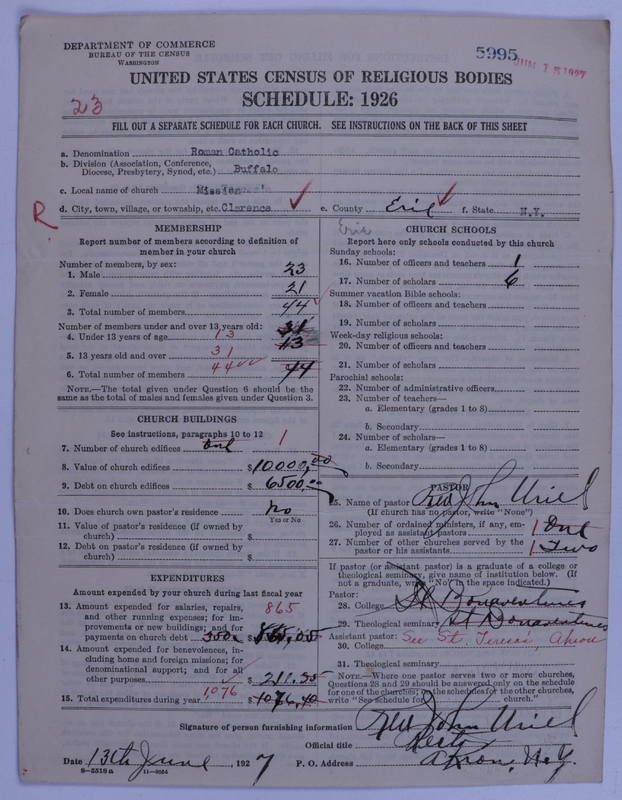 DEPARTMENT OF COMMERCE
BUREAU OF THE CENSUS
WASHINGTON
5995
JUN 15 1927
UNITED STATES CENSUS OF RELIGIOUS BODIES
SCHEDULE: 1926
23
FILL OUT A SEPARATE SCHEDULE FOR EACH CHURCH. SEE INSTRUCTIONS ON THE BACK OF THIS SHEET
a. Denomination Roman Catholic
b. Division (Association, Conference, Diocese, Presbytery, Synod, etc.) Buffalo
c. Local name of church Mission
d. City, town, village, or township, etc. Clarence e. County Erie f. State N.Y.
R
Erie
MEMBERSHIP
Report number of members according to definition of member in your church
Number of members, by sex:
1. Male 23
2. Female 21
3. Total number of members 44
Number of members under and over 13 years old:
4. Under 13 years of age 13 31
5. 13 years old and over 31 13
6. Total number of members 44 44
NOTE.—The total given under Question 6 should be the same as the total of males and females given under Question 3.
CHURCH BUILDINGS
See instructions, paragraphs 10 to 12
7. Number of church edifices One 1
8. Value of church edifices $10000.00
9. Debt on church edifices $6500.00
10. Does church own pastor's residence? No
Yes or No
11. Value of pastor's residence (if owned by church) $
12. Debt on pastor's residence (if owned by church) $
EXPENDITURES
Amount expended by your church during last fiscal year
13. Amount expended for salaries, repairs, and other running expenses; for improvements or new buildings; and for payments on church debt 865 $865.05
14. Amount expended for benevolences, including home and foreign missions; for denominational support; and for all other purposes $211.35
15. Total expenditures during year 1076 $1076.40
CHURCH SCHOOLS
Report here only schools conducted by this church
Sunday schools:
16. Number of officers and teachers 1
17. Number of scholars 6
Summer vacation Bible schools:
18. Number of officers and teachers
19. Number of scholars
Week-day religious schools:
20. Number of officers and teachers
21. Number of scholars
Parochial schools:
22. Number of administrative officers
23. Number of teachers—
a. Elementary (grades 1 to 8)
b. Secondary
24. Number of scholars—
a. Elementary (grades 1 to 8)
b. Secondary
PASTOR
25. Name of pastor Rev John Uriel
(If church has no pastor, write "None")
26. Number of ordained ministers, if any, employed as assistant pastors 1 One
27. Number of other churches served by the pastor or his assistants 1 Two
If pastor (or assistant pastor) is a graduate of a college or theological seminary, give name of institution below. (If not a graduate, write "No" in the space indicated.)
Pastor:
28. College St Bonaventures
29. Theological seminary St Bonaventures
Assistant pastor: See St. Teresa's, Akron
30. College
31. Theological seminary
NOTE.—Where one pastor serves two or more churches, Questions 28 and 29 should be answered only on the schedule for one of the churches; on the schedules for the other churches, write "See schedule for church."
Signature of person furnishing information Rev John Uriel
Official title Rector
Date 13th June, 1927 P. O. Address Akron, N.Y.
8-5518a 11-9054